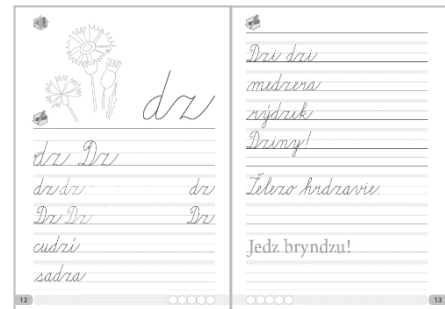 dz
dz Dz
dz dz dz
Dz Dz Dz
cudzí
sadza
12
Dzi dzi
medzera
rýdzik
Dziny!
Železo hrdzavie.
Jedz bryndzu!
13